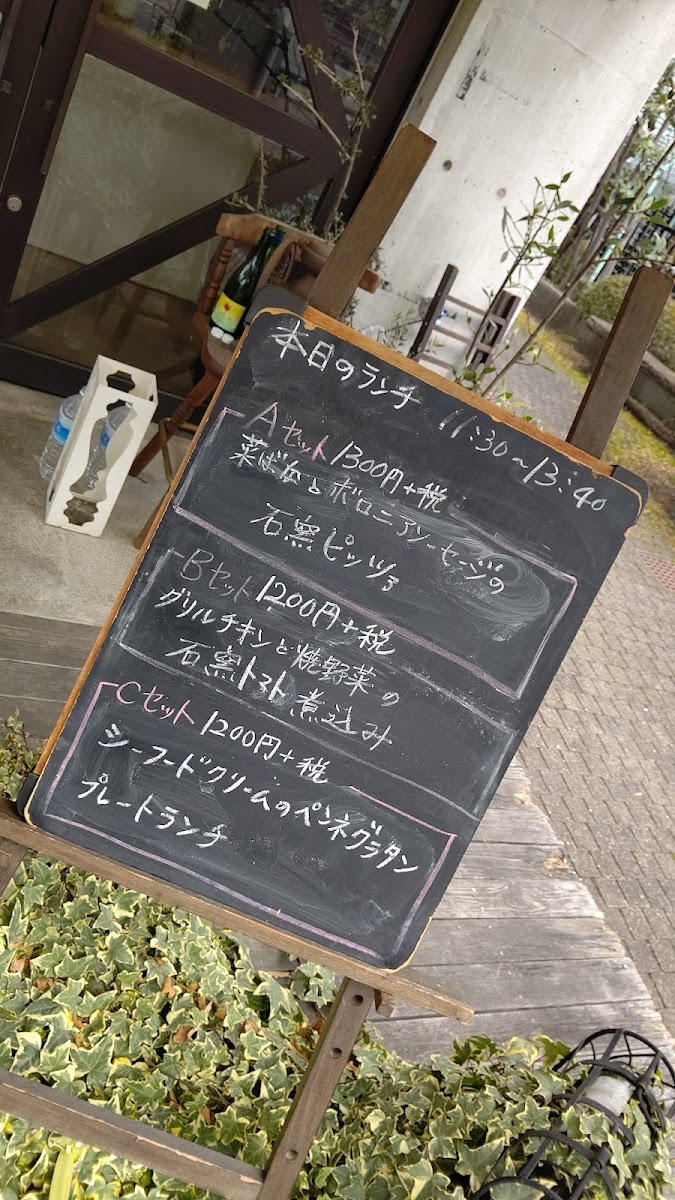 本日のランチ 11:30~13:40
Aセット 1300円+税
菜ばなとボロニアソーセージの
石窯ピッツァ
Bセット 1200円+税
グリルチキンと焼野菜の
石窯トマト煮込み
Cセット 1200円+税
シーフードクリームのペンネグラタン
プレートランチ